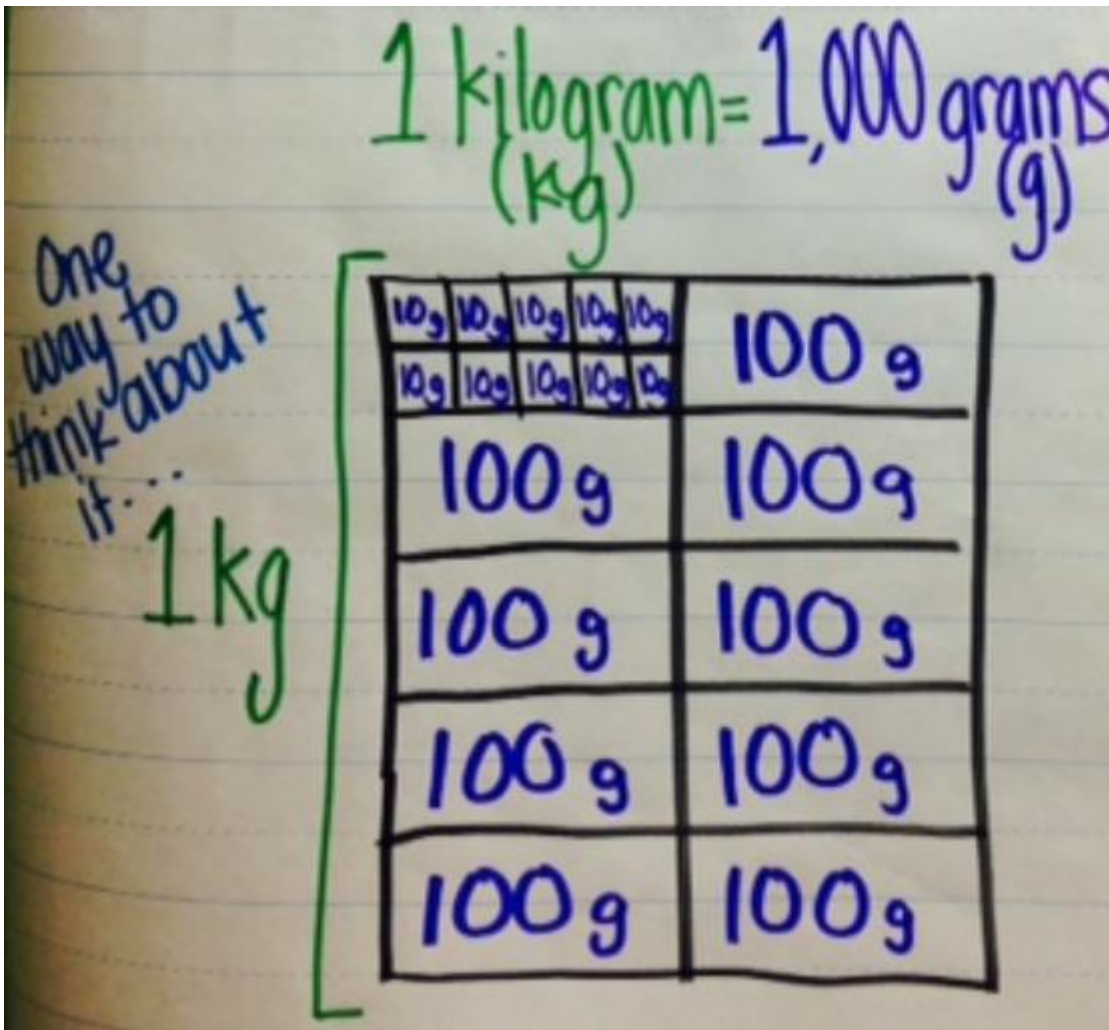 1 kilogram = 1,000 grams
(kg) (g)
One
way to
think about
it...
1 kg
10g 10g 10g 10g 10g
10g 10g 10g 10g 10g
100 g
100 g 100 g
100 g 100 g
100 g 100 g
100 g 100 g